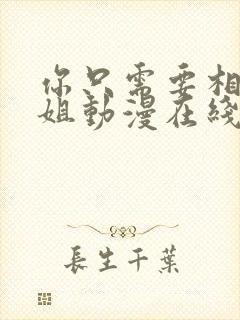 你只需要相
姐動漫在綫
長生千葉